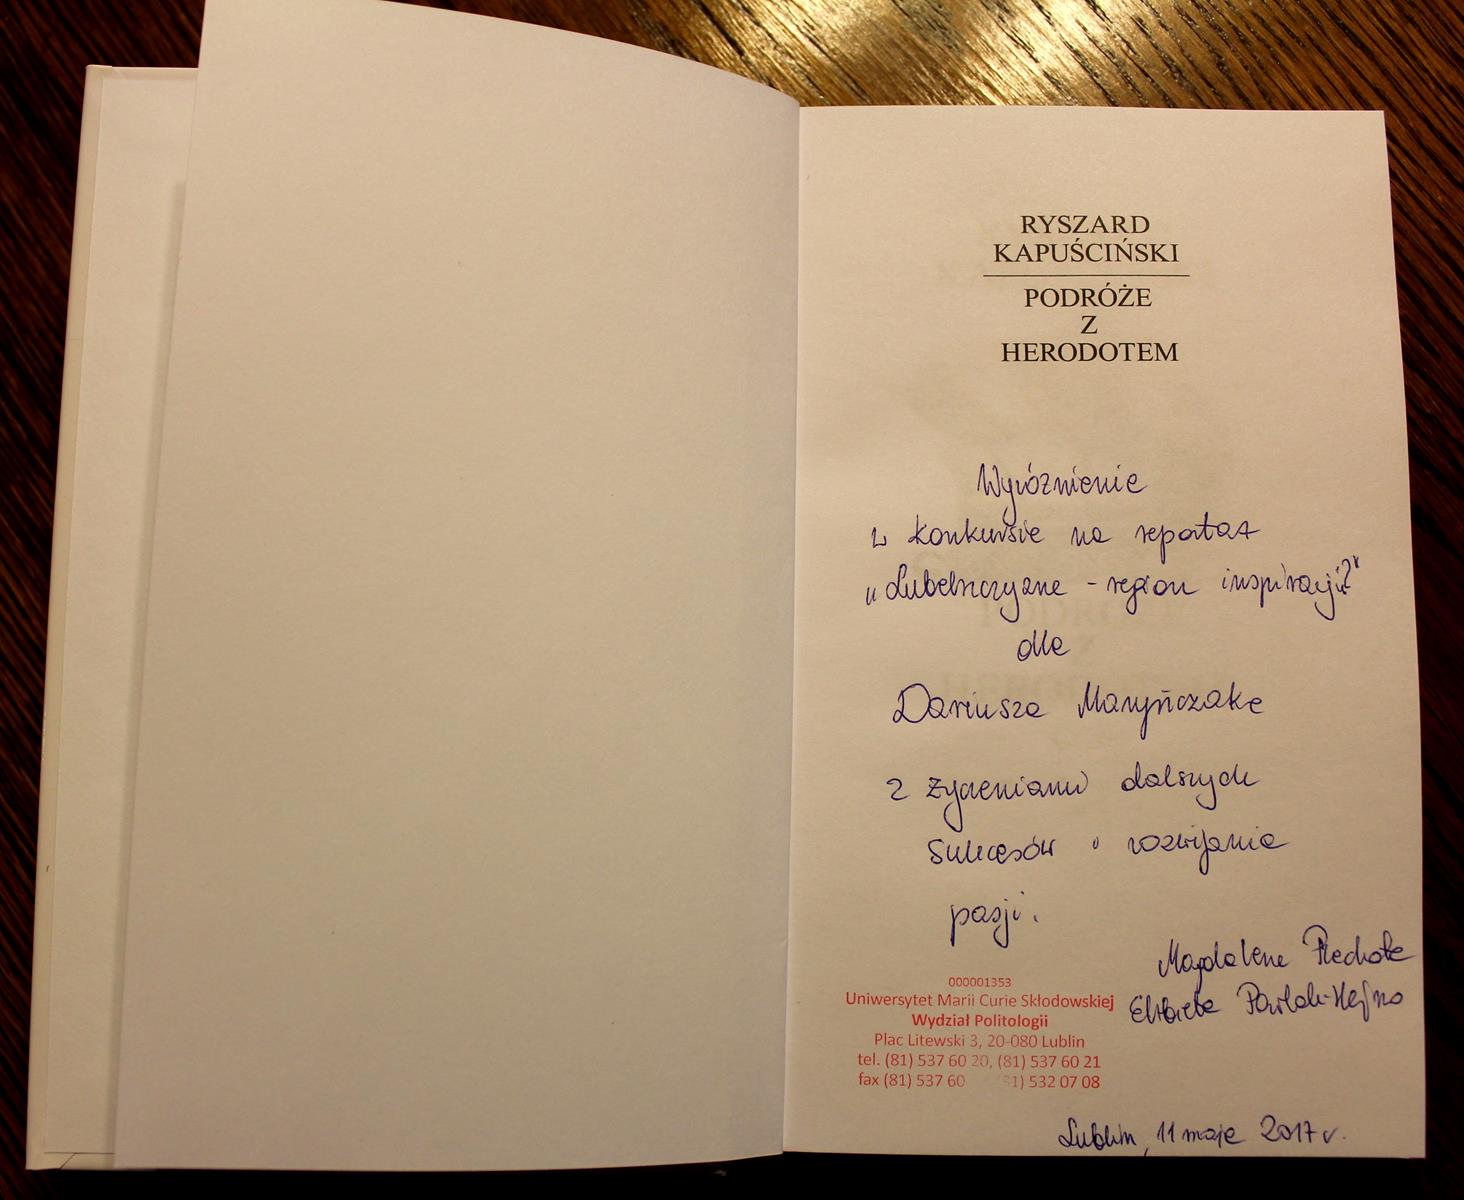 RYSZARD
KAPUŚCIŃSKI
PODRÓŻE
Z
HERODOTEM
Wyróżnienie
w konkursie na reportaż
„Lubelszczyzna - region inspiracji"
dla
Dariusza Maryńczaka
z życzeniami dalszych
sukcesów i rozwijania
pasji.
Magdalena Piechota
Elżbieta Pawlak-Hejno
000001353
Uniwersytet Marii Curie Skłodowskiej
Wydział Politologii
Plac Litewski 3, 20-080 Lublin
tel. (81) 537 60 20, (81) 537 60 21
fax (81) 537 60 81) 532 07 08
Lublin, 11 maja 2017 r.